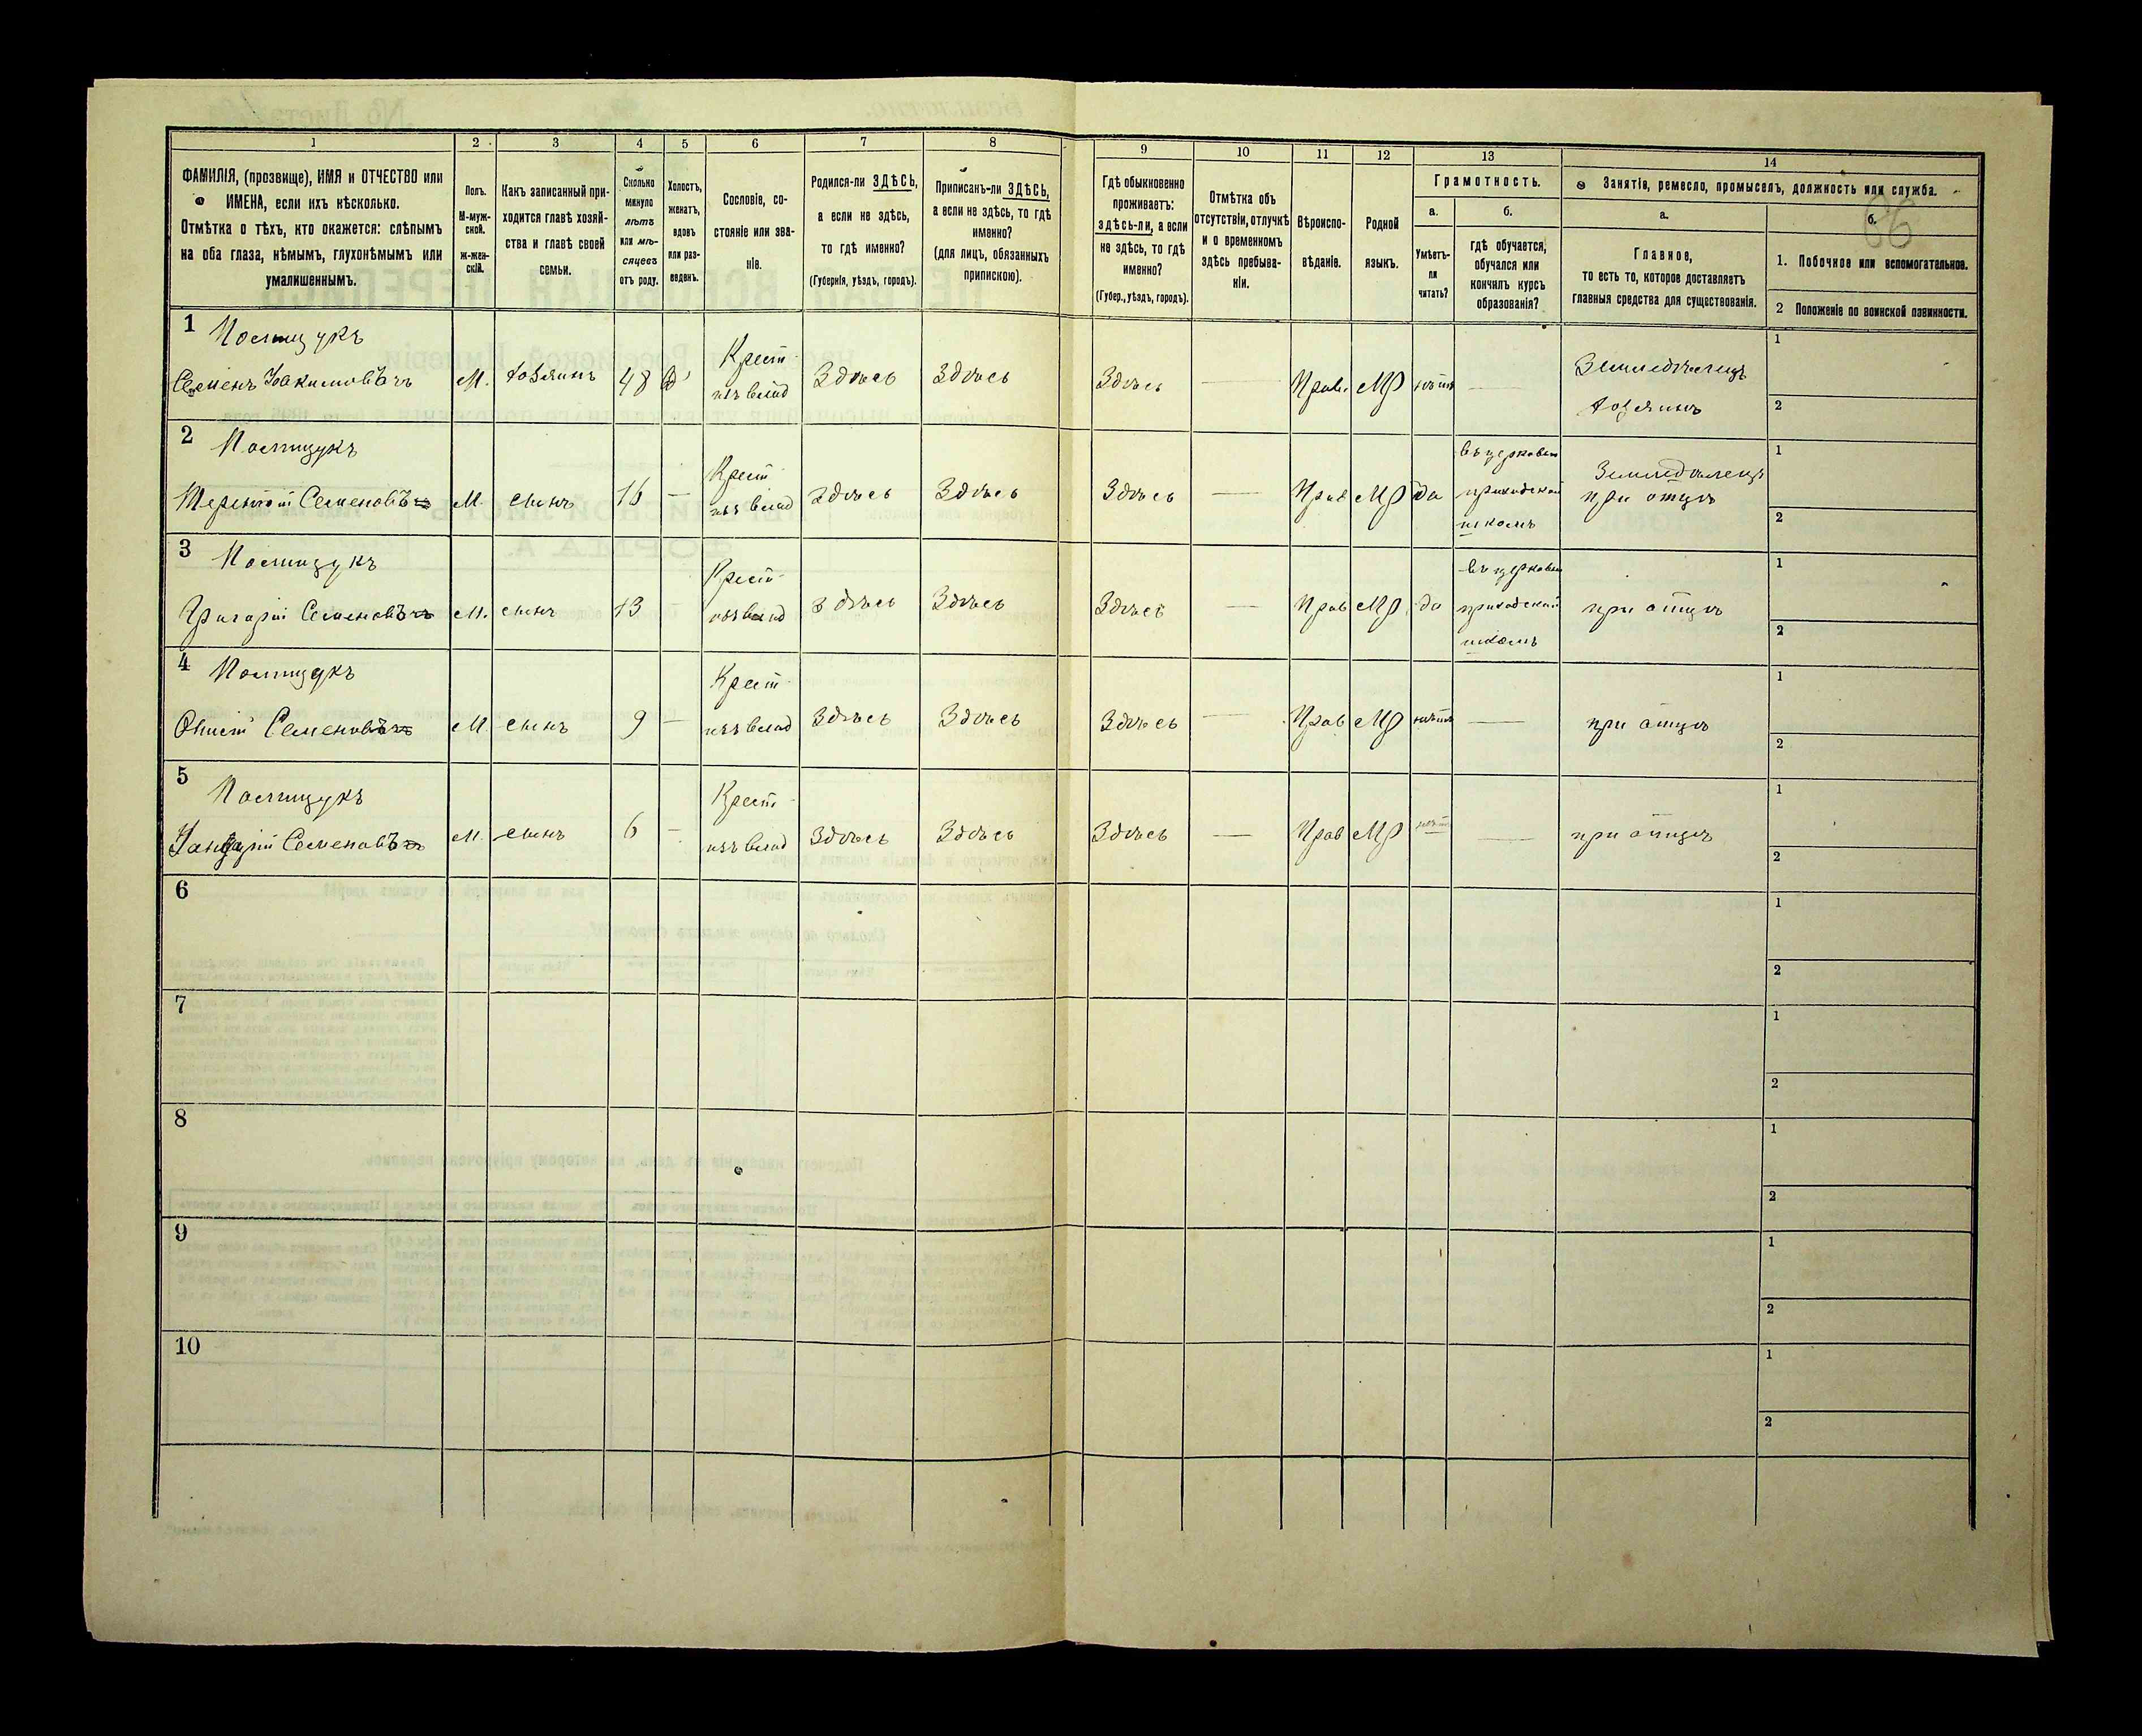 1
2
3
4
5
6
7
8
9
10
11
12
13
14
ФАМИЛІЯ, (прозвище), ИМЯ и ОТЧЕСТВО или
ИМЕНА, если ихъ нѣсколько.
Отмѣтка о тѣхъ, кто окажется: слѣпымъ
на оба глаза, нѣмымъ, глухонѣмымъ или
умалишеннымъ.
Полъ.
М-муж-
ской.
Ж-жен-
скій.
Какъ записанный при-
ходится главѣ хозяй-
ства и главѣ своей
семьи.
Сколько
минуло
лѣтъ
или мѣ-
сяцевъ
отъ роду.
Холостъ,
женатъ,
вдовъ
или раз-
веденъ.
Сословіе, со-
стояніе или зва-
ніе.
Родился-ли ЗДѢСЬ,
а если не здѣсь,
то гдѣ именно?
(Губернія, уѣздъ, городъ).
Приписанъ-ли ЗДѢСЬ,
а если не здѣсь, то гдѣ
именно?
(для лицъ, обязанныхъ
припискою).
Гдѣ обыкновенно
проживаетъ:
здѣсь-ли, а если
не здѣсь, то гдѣ
именно?
(Губер., уѣздъ, городъ).
Отмѣтка объ
отсутствіи, отлучкѣ
и о временномъ
здѣсь пребыва-
ніи.
Вѣроиспо-
вѣданіе.
Родной
языкъ.
Грамотность.
а.
Умѣетъ-
ли
читать?
б.
гдѣ обучается,
обучался или
кончилъ курсъ
образованія?
Занятіе, ремесло, промыселъ, должность или служба.
а.
Главное,
то есть то, которое доставляетъ
главныя средства для существованія.
б.
1. Побочное или вспомогательное.
2 Положеніе по воинской повинности.
1
Семенъ
М.
хозяинъ
48
в
Крест
изъ влад
Здѣсь
Здѣсь
Здѣсь
Прав.
МР
нѣтъ
Земледѣлецъ
хозяинъ
1
2
2
Терентій Семеновъ
М.
сынъ
16
Крест
изъ влад
Здѣсь
Здѣсь
Здѣсь
Прав
МР
да
въ церковно
приходской
школѣ
Земледѣлецъ
при отцѣ
1
2
3
Григорій Семеновъ
М.
сынъ
13
Крест
изъ влад
Здѣсь
Здѣсь
Здѣсь
Прав
МР
да
въ церковно
приходской
школѣ
при отцѣ
1
2
4
Семеновъ
М.
сынъ
9
Крест
изъ влад
Здѣсь
Здѣсь
Здѣсь
Прав
МР
нѣтъ
при отцѣ
1
2
5
Семеновъ
М.
сынъ
6
Крест
изъ влад
Здѣсь
Здѣсь
Здѣсь
Прав
МР
нѣтъ
при отцѣ
1
2
6
1
2
7
1
2
8
1
2
9
1
2
10
1
2